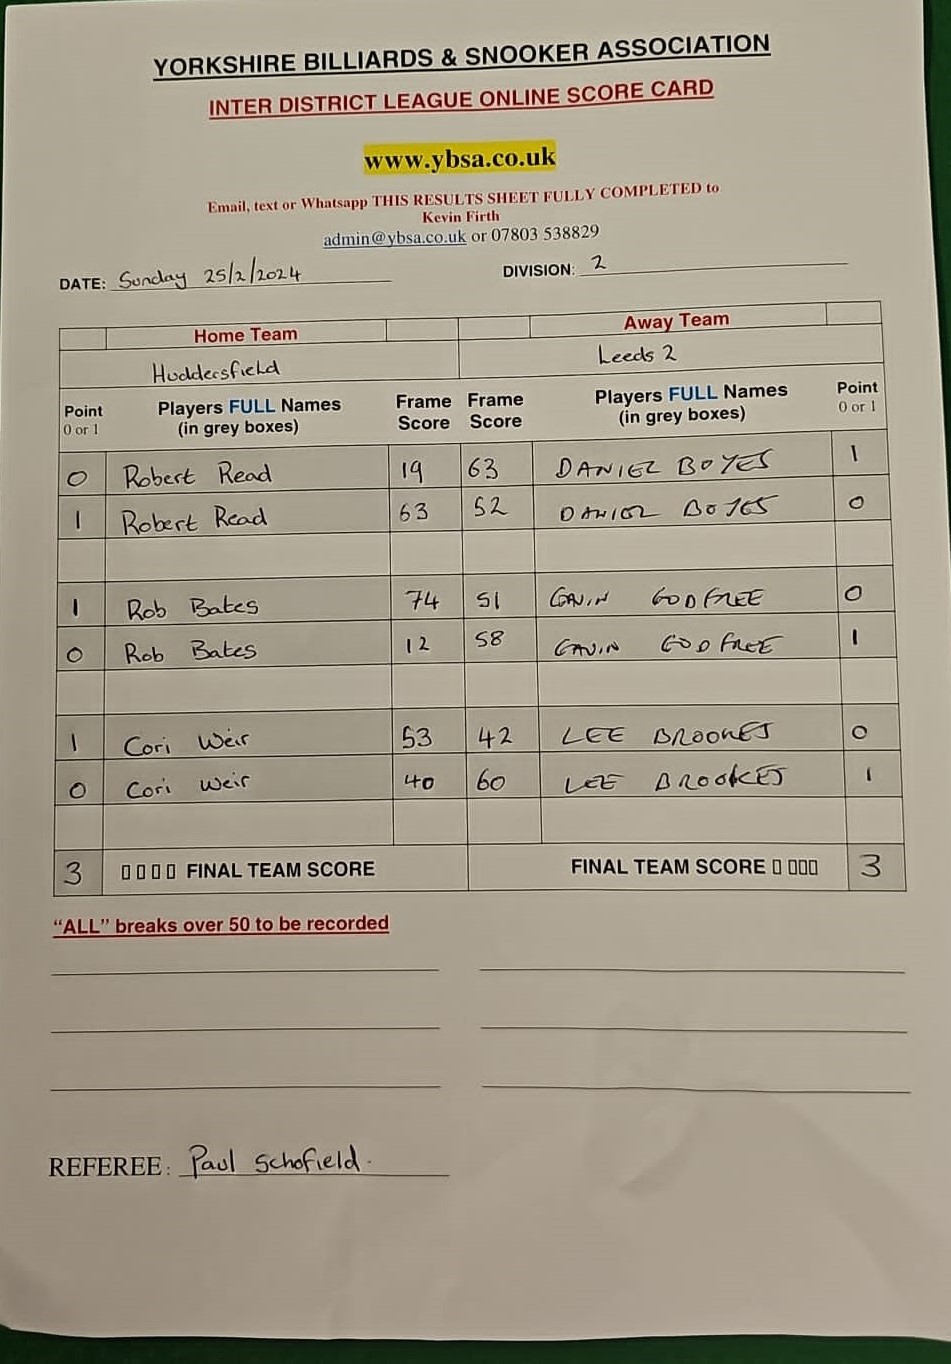 YORKSHIRE BILLIARDS & SNOOKER ASSOCIATION
INTER DISTRICT LEAGUE ONLINE SCORE CARD
www.ybsa.co.uk
Email, text or Whatsapp THIS RESULTS SHEET FULLY COMPLETED to
Kevin Firth
admin@ybsa.co.uk or 07803 538829
DATE: Sunday 25/2/2024 DIVISION: 2
Home Team Away Team
Huddersfield Leeds 2
Point 0 or 1 Players FULL Names (in grey boxes) Frame Score Frame Score Players FULL Names (in grey boxes) Point 0 or 1
0 Robert Read 19 63 DANIEL BOYES 1
1 Robert Read 63 52 DANIEL BOYES 0
1 Rob Bates 74 51 GAVIN GODFREE 0
0 Rob Bates 12 58 GAVIN GODFREE 1
1 Cori Weir 53 42 LEE BROOKES 0
0 Cori Weir 40 60 LEE BROOKES 1
3 FINAL TEAM SCORE FINAL TEAM SCORE 3
"ALL" breaks over 50 to be recorded
REFEREE: Paul Schofield.